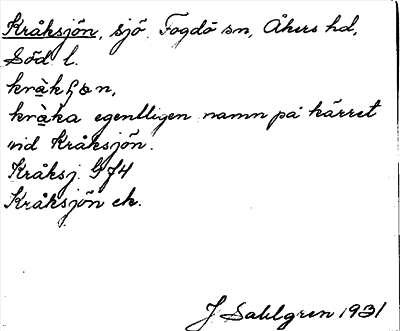 Kråksjön, sjö Fogdö sn, Åkers hd,
Söd l.
kråka egentligen namn på kärret
vid Kråksjön.
Kråksj. G74
Kråksjön ek.
J Sahlgren 1931